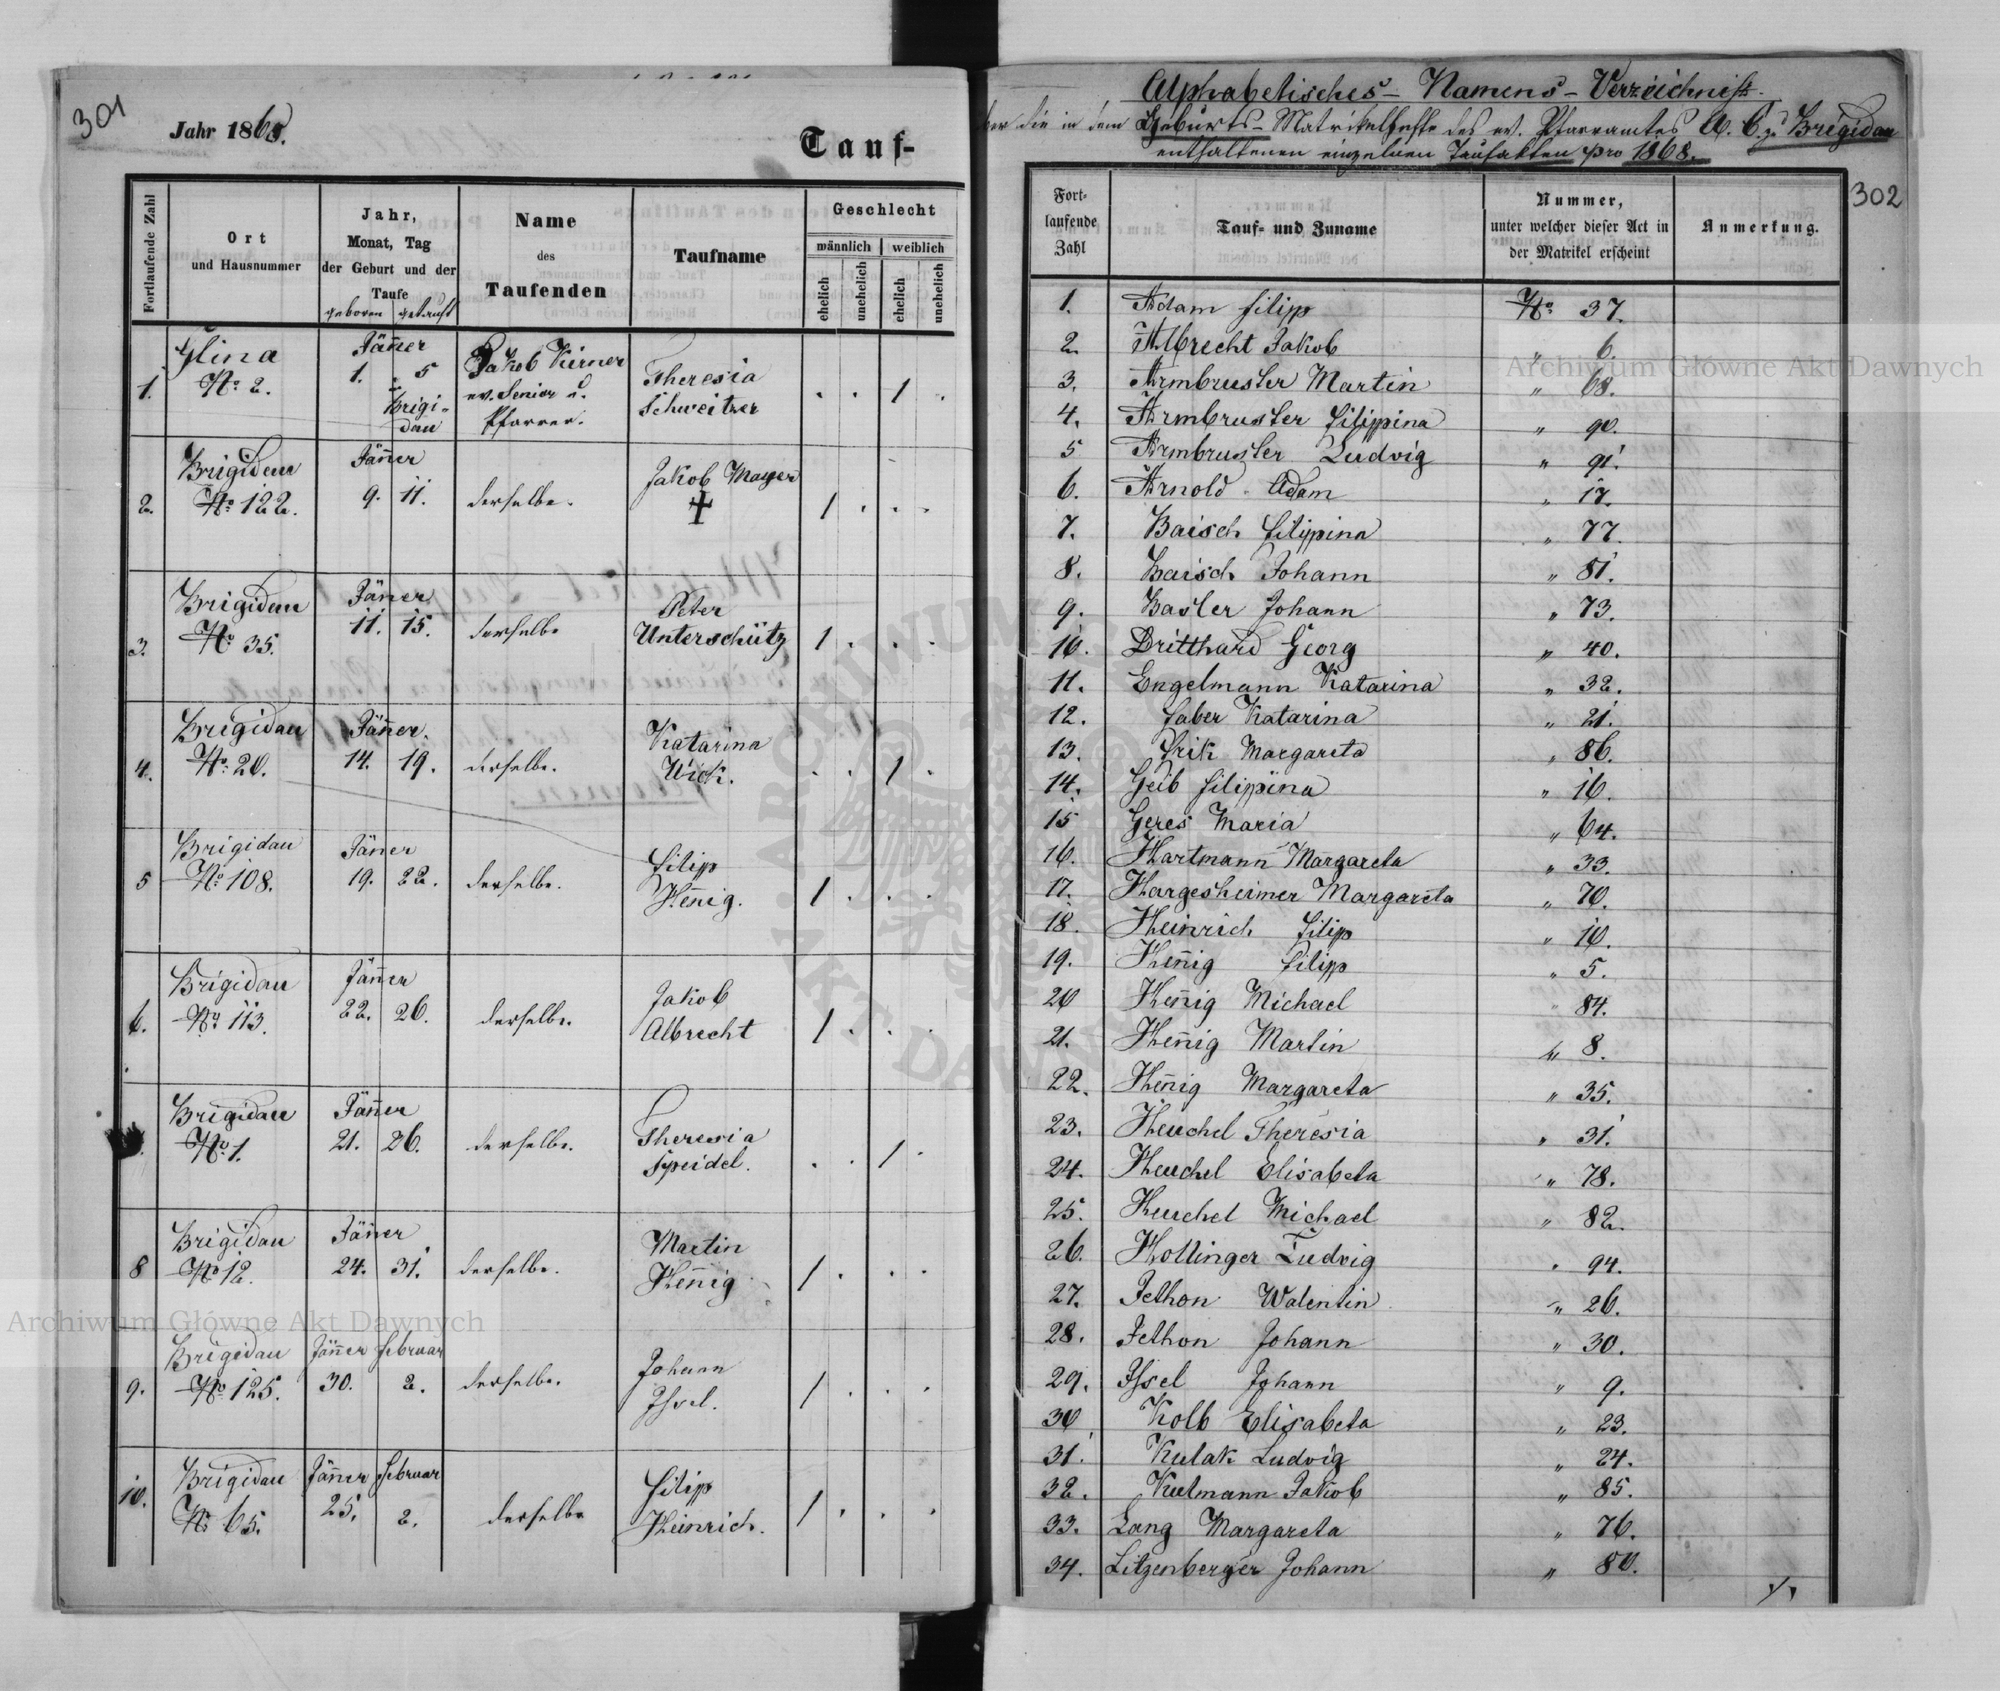 301
Jahr 1868.
Tauf-
Fortlaufende Zahl
Ort
und Hausnummer
Jahr,
Monat, Tag
der Geburt und der
Taufe
geboren getauft
Name
des
Taufenden
Taufname
Geschlecht
männlich weiblich
ehelich unehelich ehelich unehelich
1.
Uglina
No 2.
Jäner
1. 5
Brigi-
dau
Jakob Kirner
ev. Senior u.
Pfarrer.
Theresia
Schweitzer
1
2.
Brigidau
No 122.
Jäner
9. 11.
derselbe.
Jakob Mayer
1
3.
Brigidau
No 35.
Jäner
11. 15.
derselbe
Peter
Unterschütz
1
4.
Brigidau
No 20.
Jäner.
14. 19.
derselbe.
Katarina
Uich.
1
5
Brigidau
No 108.
Jäner
19. 22.
derselbe.
Filipp
Hen̄ig.
1
6.
Brigidau
No 113.
Jäner
22. 26.
derselbe.
Jakob
Albrecht
1
Brigidau
No 1.
Jäner
21. 26.
derselbe.
Theresia
Speidel.
1
8
Brigidau
No 12.
Jäner
24. 31.
derselbe.
Martin
Hen̄ig
1
9.
Brigidau
No 125.
Jäner Februar
30. 2.
derselbe.
Johann
Issel.
1
10.
Brigidau
No 65.
Jäner Februar
25. 2.
derselbe
Filipp
Heinrich.
1
Alphabetisches- Namens- Verzeichniß.
über die in dem Geburts-Matrikelhefte des ev. Pfarramtes A. C. zu Brigidau
enthaltenen einzelnen Taufakten pro 1868.
302
Fort-
laufende
Zahl
Tauf- und Zuname
Nummer,
unter welcher dieser Act in
der Matrikel erscheint
Anmerkung.
1. Adam Filipp No 37.
2. Albrecht Jakob " 6.
3. Armbruster Martin " 68.
4. Armbruster Filippina " 90.
5 Armbruster Ludvig " 91.
6. Arnold Adam " 17.
7. Baisch Filippina " 77.
8. Baisch Johann " 81.
9. Basler Johann " 73.
10. Dritthard Georg " 40.
11. Engelmann Katarina " 32.
12. Faber Katarina " 21.
13. Frik Margareta " 86.
14. Geib Filippina " 16.
15 Geres Maria " 64.
16. Hartmann Margareta " 33.
17. Hargesheimer Margareta " 70.
18. Heinrich Filip " 10.
19. Hen̄ig Filipp " 5.
20 Hen̄ig Michael " 84.
21. Hen̄ig Martin " 8.
22. Hen̄ig Margareta " 35.
23. Heuchel Theresia " 31.
24. Heuchel Elisabeta " 78.
25. Heuchel Michael " 82.
26. Hollinger Ludvig " 94.
27. Jethon Walentin " 26.
28. Jethon Johann " 30.
29. Issel Johann " 9.
30 Kolb Elisabeta " 23.
31. Kulak Ludvig " 24.
32. Kulmann Jakob " 85.
33. Lang Margareta " 76.
34. Litzenberger Johann " 80.
Archiwum Główne Akt Dawnych
Archiwum Główne Akt Dawnych
ARCHIWUM
AKT DAWN